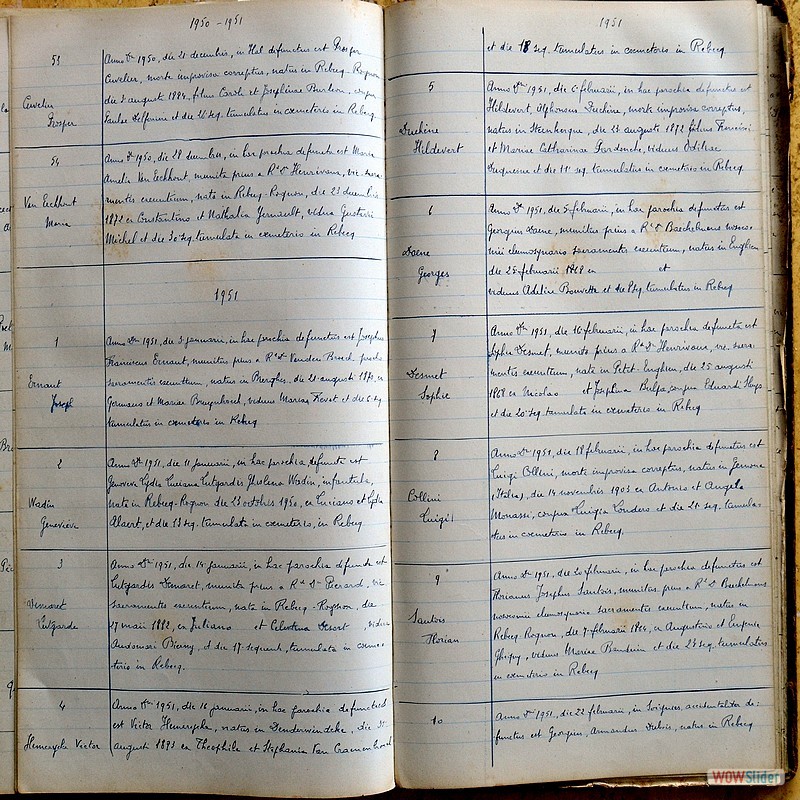 1950 - 1951
53
Cuvelier
Prosper
Anno Dni 1950, die 21 decembris, in Hal defunctus est Prosper
Cuvelier, morte improvisa correptus, natus in Rebecq-Rognon
die 2 augusti 1884, filius Caroli et Josephinae
Paulae Delfinine et die 24 seq. tumulatus in coemeterio in Rebecq.
54
Van Eeckhout
Maria
Anno Dni 1950, die 28 decembris, in hac parochia defuncta est Maria
Amelia Van Eeckhout, munita prius a Rdo Do Henrivaux, vic. sacra-
mentis exeuntium, nata in Rebecq-Rognon, die 23 decembris
1872 ex Constantino et Nathalia vidua Gustavi
Michel et die 30 seq. tumulata in coemeterio in Rebecq
1951
1
Ernaut
Joseph
Anno Dni 1951, die 3 januarii, in hac parochia defunctus est Josephus
Franciscus Ernaut, munitus prius a Rdo Do Vanden Broeck parocho
sacramentis exeuntium, natus in Bierghes, die 21 augusti ex
Germano et Maria viduus Maria et die 6 seq.
tumulatus in coemeterio in Rebecq
2
Wadin
Geneviève
Anno Dni 1951, die 11 januarii, in hac parochia defuncta est
Genoveva Lydia Luciana Lutgardis Ghislena Wadin, infantula,
nata in Rebecq-Rognon die 23 octobris 1950, ex Luciano et Lydia
Alaert, et die 13 seq. tumulata in coemeterio, in Rebecq.
3
Lutgarde
Anno Dni 1951, die 14 januarii, in hac parochia defuncta est
Lutgardis munita prius a Rdo Do Pierard, vic
sacramentis exeuntium, nata in Rebecq-Rognon, die
27 maii 1882, ex Juliano et Celestina vidua
et die 17 sequent. tumulata in coeme-
terio in Rebecq.
4
Hemerycks Victor
Anno Dni 1951, die 16 januarii, in hac parochia defunctus
est Victor Hemerycks, natus in Denderwindeke, die 31
augusti 1893 ex Theophilo et Stephania Van
1951
et die 18 seq. tumulatus in coemeterio in Rebecq
5
Duchêne
Hildevert
Anno Dni 1951, die 6 februarii, in hac parochia defunctus est
Hildevert, Alphonsus Duchêne, morte improvisa correptus,
natus in Steenkerque, die 23 augusti 1872 filius Francisci
et Mariae Catharinae viduus Odiliae
Duquesne et die 11 seq. tumulatus in coemeterio in Rebecq
6
Daene
Georges
Anno Dni 1951, die 5 februarii, in hac parochia defunctus est
Georgius Daene, munitus prius a Rdo Do Baechelmans nosoco-
mii elemosynario sacramentis exeuntium, natus in Enghien
die 25 februarii 1868 ex et
viduus Adelina Bouvette et die 8 seq. tumulatus in Rebecq
7
Desmet
Sophie
Anno Dni 1951, die 16 februarii, in hac parochia defuncta est
Sophie Desmet, munita prius a Rdo Do Henrivaux, vic. sacra-
mentis exeuntium, nata in Petit-Enghien, die 25 augusti
1868 ex Nicolao et Josephina conjux Eduardi
et die 20 seq. tumulata in coemeterio in Rebecq
8
Collini
Luigi
Anno Dni 1951, die 18 februarii, in hac parochia defunctus est
Luigi Collini, morte improvisa correptus, natus in Gemona
(Italia), die 14 novembris 1903 ex Antonio et Angela
Monassi, conjux Luigia Londero et die 21 seq. tumula-
tus in coemeterio in Rebecq.
9
Sautois
Florian
Anno Dni 1951, die 20 februarii, in hac parochia defunctus est
Florianus Josephus Sautois, munitus prius a Rdo Do Baechelmans
nosocomii elemosynario sacramentis exeuntium, natus in
Rebecq-Rognon, die 7 februarii 1866, ex Augustino et Eugenia
Ghigny, viduus Maria Bauduin et die 23 seq. tumulatus
in coemeterio in Rebecq
10
Anno Dni 1951, die 22 februarii, in Soignies, accidentaliter de-
functus est Georgius, Armandus Dubois, natus in Rebecq
WOWSlider